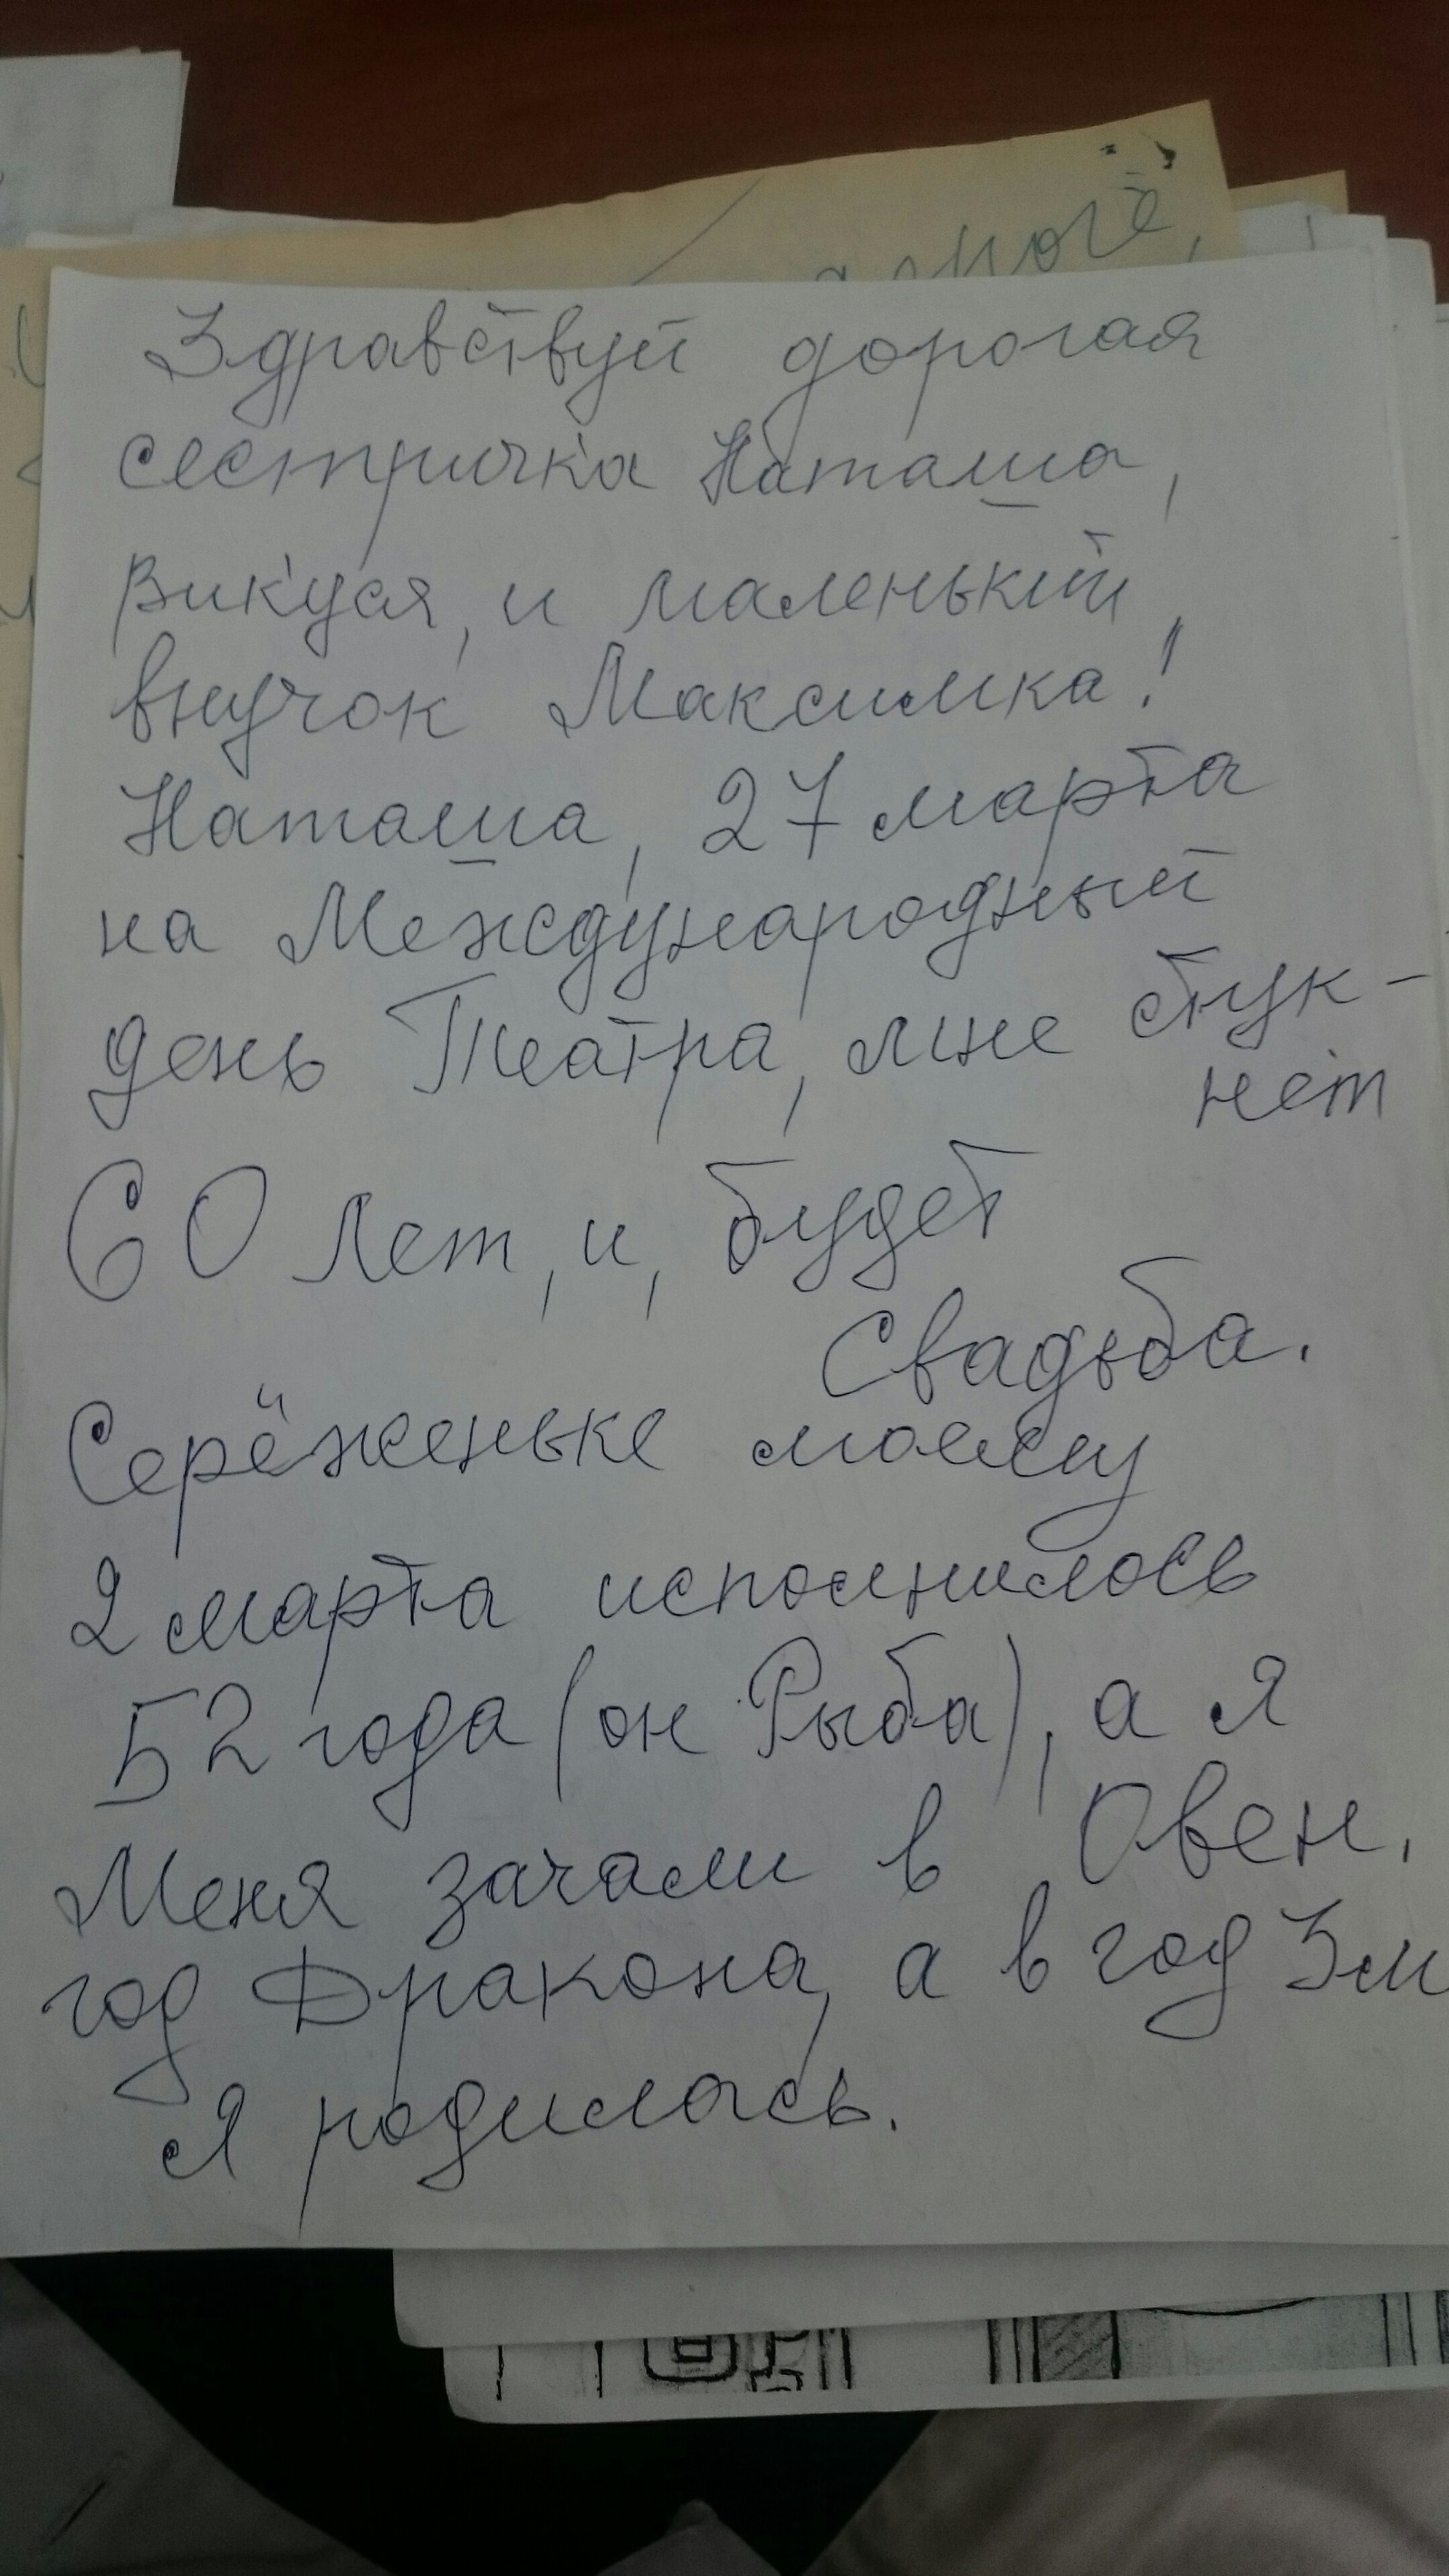 Здравствуй дорогая
сестричка Наташа,
Викуся, и маленький,
внучок Максимка!
Наташа, 27 марта
на Международный
день Театра, мне стук-
нет
60 лет, и, будет
Свадьба.
Серёженьке моему
2 марта исполнилось
52 года (он Рыба), а я
Овен.
Меня зачали в
год Дракона, а в год Зм
я родилась.